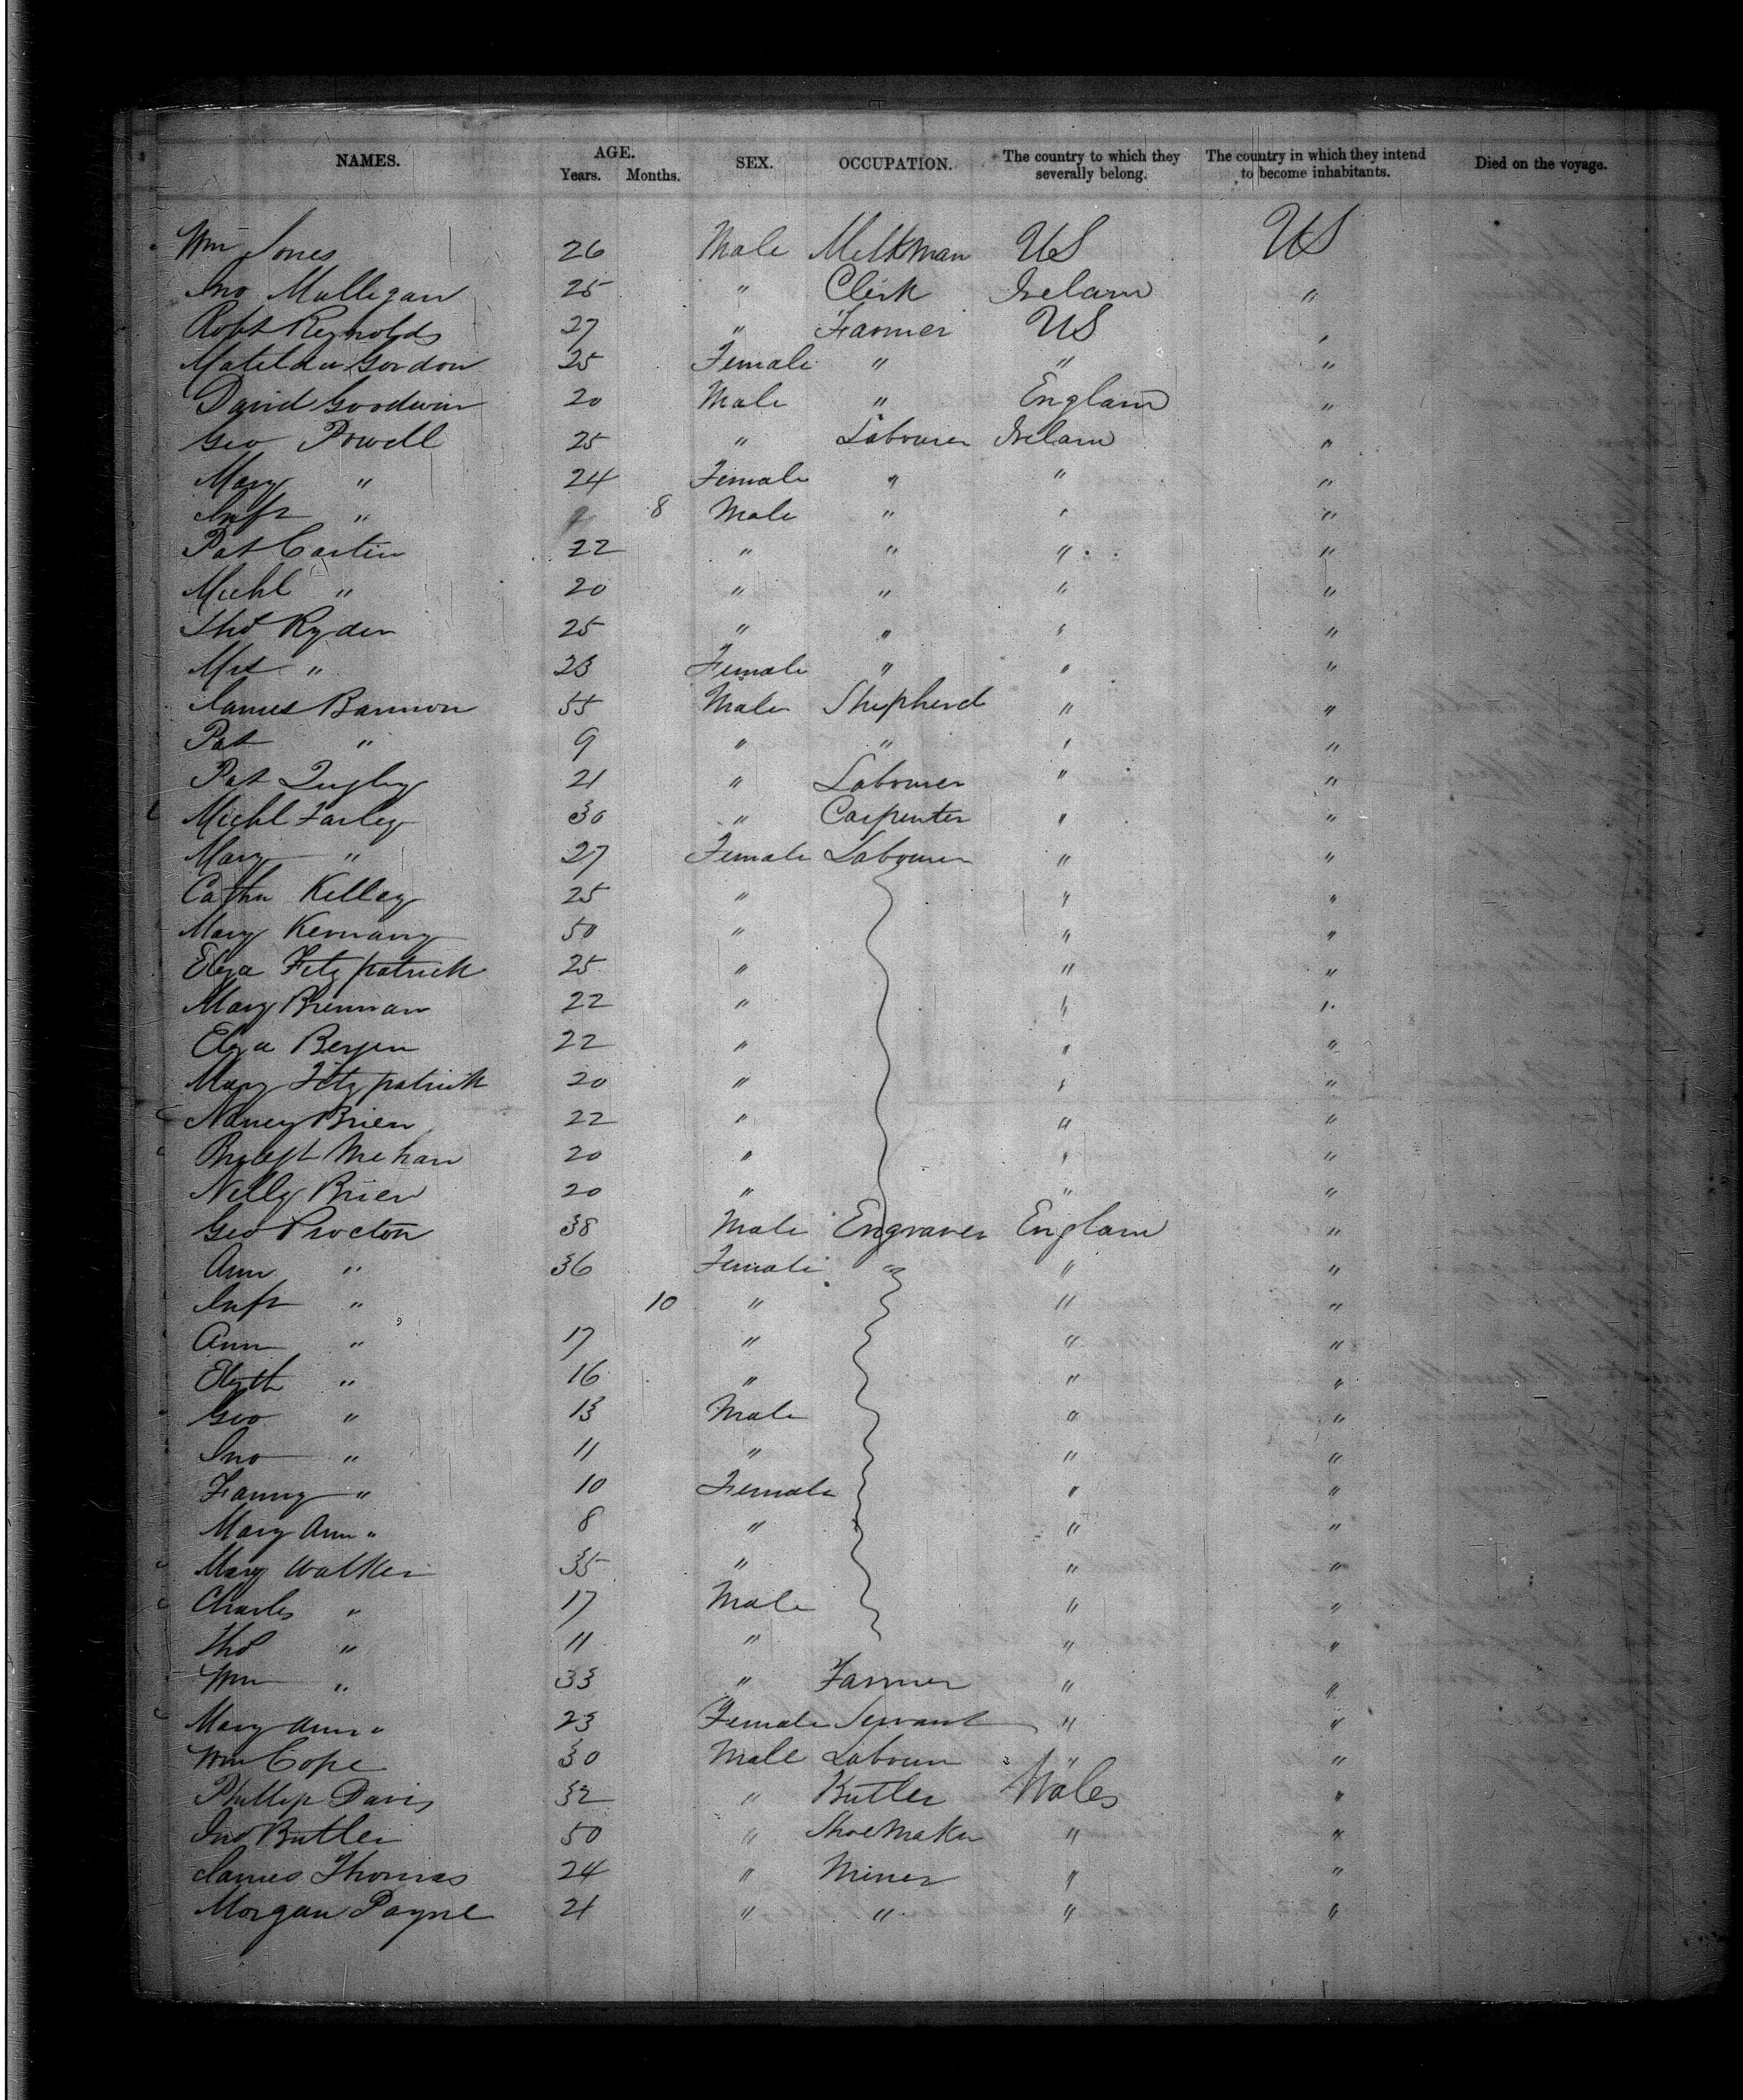 NAMES. AGE. Years. Months. SEX. OCCUPATION. The country to which they severally belong. The country in which they intend to become inhabitants. Died on the voyage.
Wm Jones 26 Male Milkman US US
Jno Mulligan 25 " Clerk Ireland "
Robt Reynolds 27 " Farmer US "
Matilda Gordon 25 Female " " "
David Goodwin 20 Male " England "
Geo Powell 25 " Labourer Ireland "
Mary " 24 Female " " "
Inft " 8 Male " " "
Pat Cartin 22 " " " "
Michl " 20 " " " "
Thos Ryder 25 " " " "
Mrs " 23 Female " " "
James Bannon 55 Male Shepherd " "
Pat " 9 " " " "
Pat Quigley 21 " Labourer " "
Michl Farley 30 " Carpenter " "
Mary " 27 Female Labourer " "
Cathn Kelley 25 " " "
Mary 50 " " "
Eliza Fitzpatrick 25 " " "
Mary Brennan 22 " " "
Eliza Bergen 22 " " "
Mary Fitzpatrick 20 " " "
Nancy Brien 22 " " "
Mehan 20 " " "
Nelly Brien 20 " " "
Geo Procton 38 Male Engraver England "
Ann " 36 Female " " "
Inft " 10 " " "
Ann " 17 " " "
Elizth " 16 " " "
Geo " 13 Male " "
Jno " 11 " " "
Fanny " 10 Female " "
Mary Ann " 8 " " "
Mary Walker 35 " " "
Charles " 17 Male " "
Thos " 11 " " "
Wm " 33 " Farmer " "
Mary Ann " 23 Female Servant " "
Wm Cope 30 Male Labourer " "
Phillip Davis 32 " Butler Wales "
Jno Butler 50 " Shoemaker " "
James Thomas 24 " Miner " "
Morgan Payne 21 " " " "